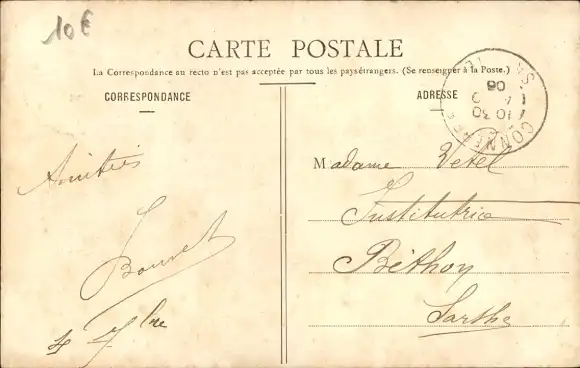 10€
CARTE POSTALE
La Correspondance au recto n'est pas acceptée par tous les paysétrangers. (Se renseigner à la Poste.)
CORRESPONDANCE
ADRESSE
Amitiés
Bouvet
4 7bre
Madame Vetel
Institutrice
Béthon
Sarthe
CONNERRE
SARTHE
10 30
06